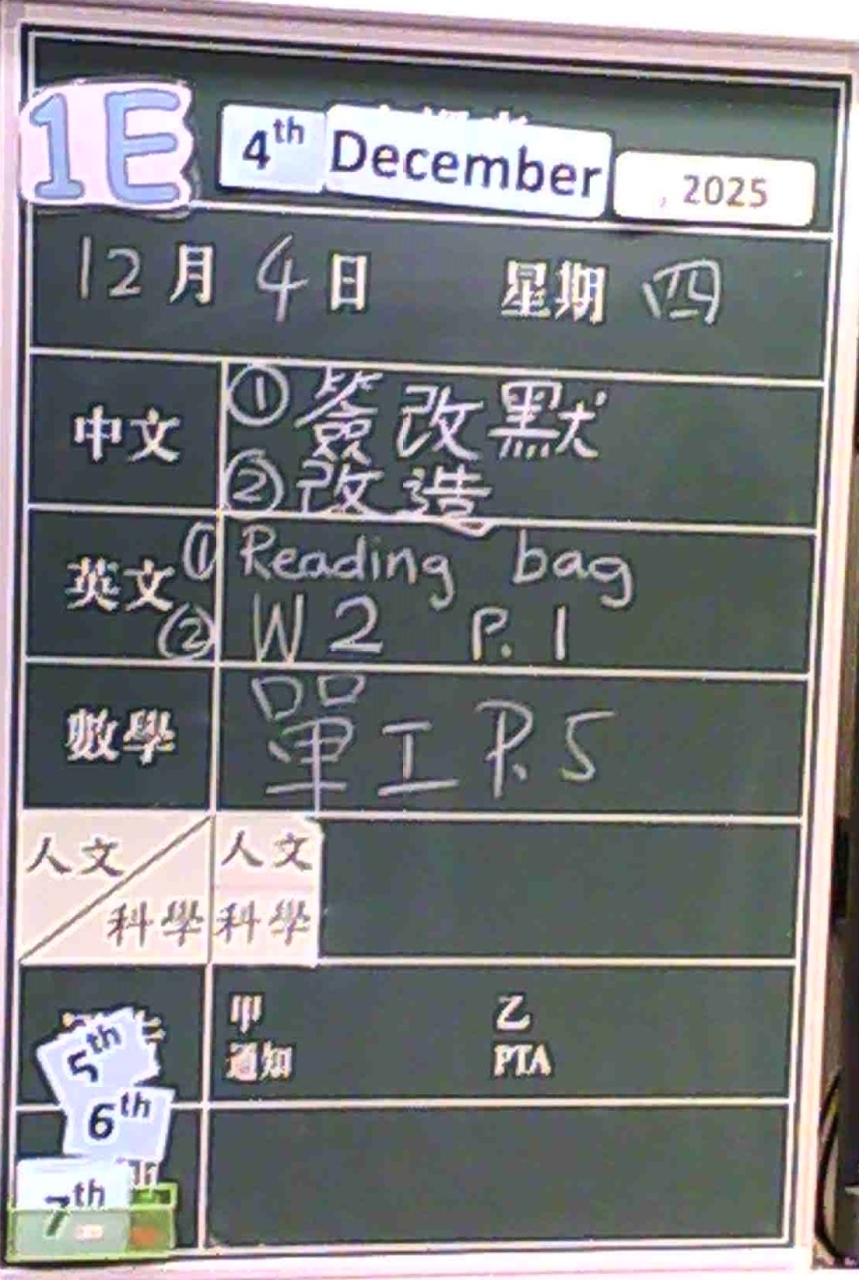 1E
4th December, 2025
12月4日 星期 四
中文 ①簽改默
②改造
英文 ① Reading bag
② W2 P.1
數學 單工 P.5
人文 科學 人文 科學
甲 乙
通知 PTA
5th
6th
7th